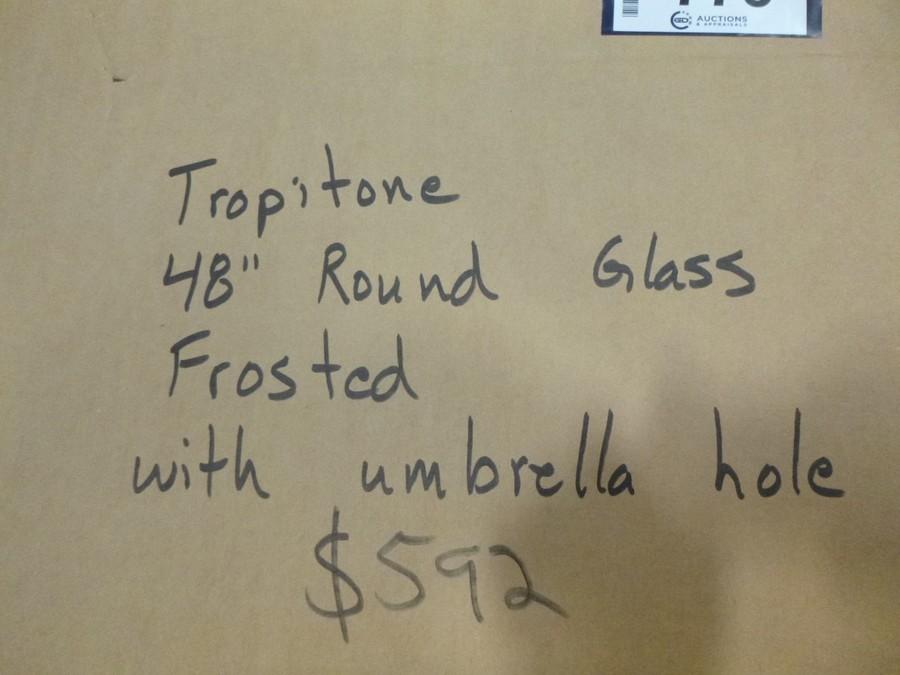 GD AUCTIONS
& APPRAISALS
Tropitone
48" Round Glass
Frosted
with umbrella hole
$592